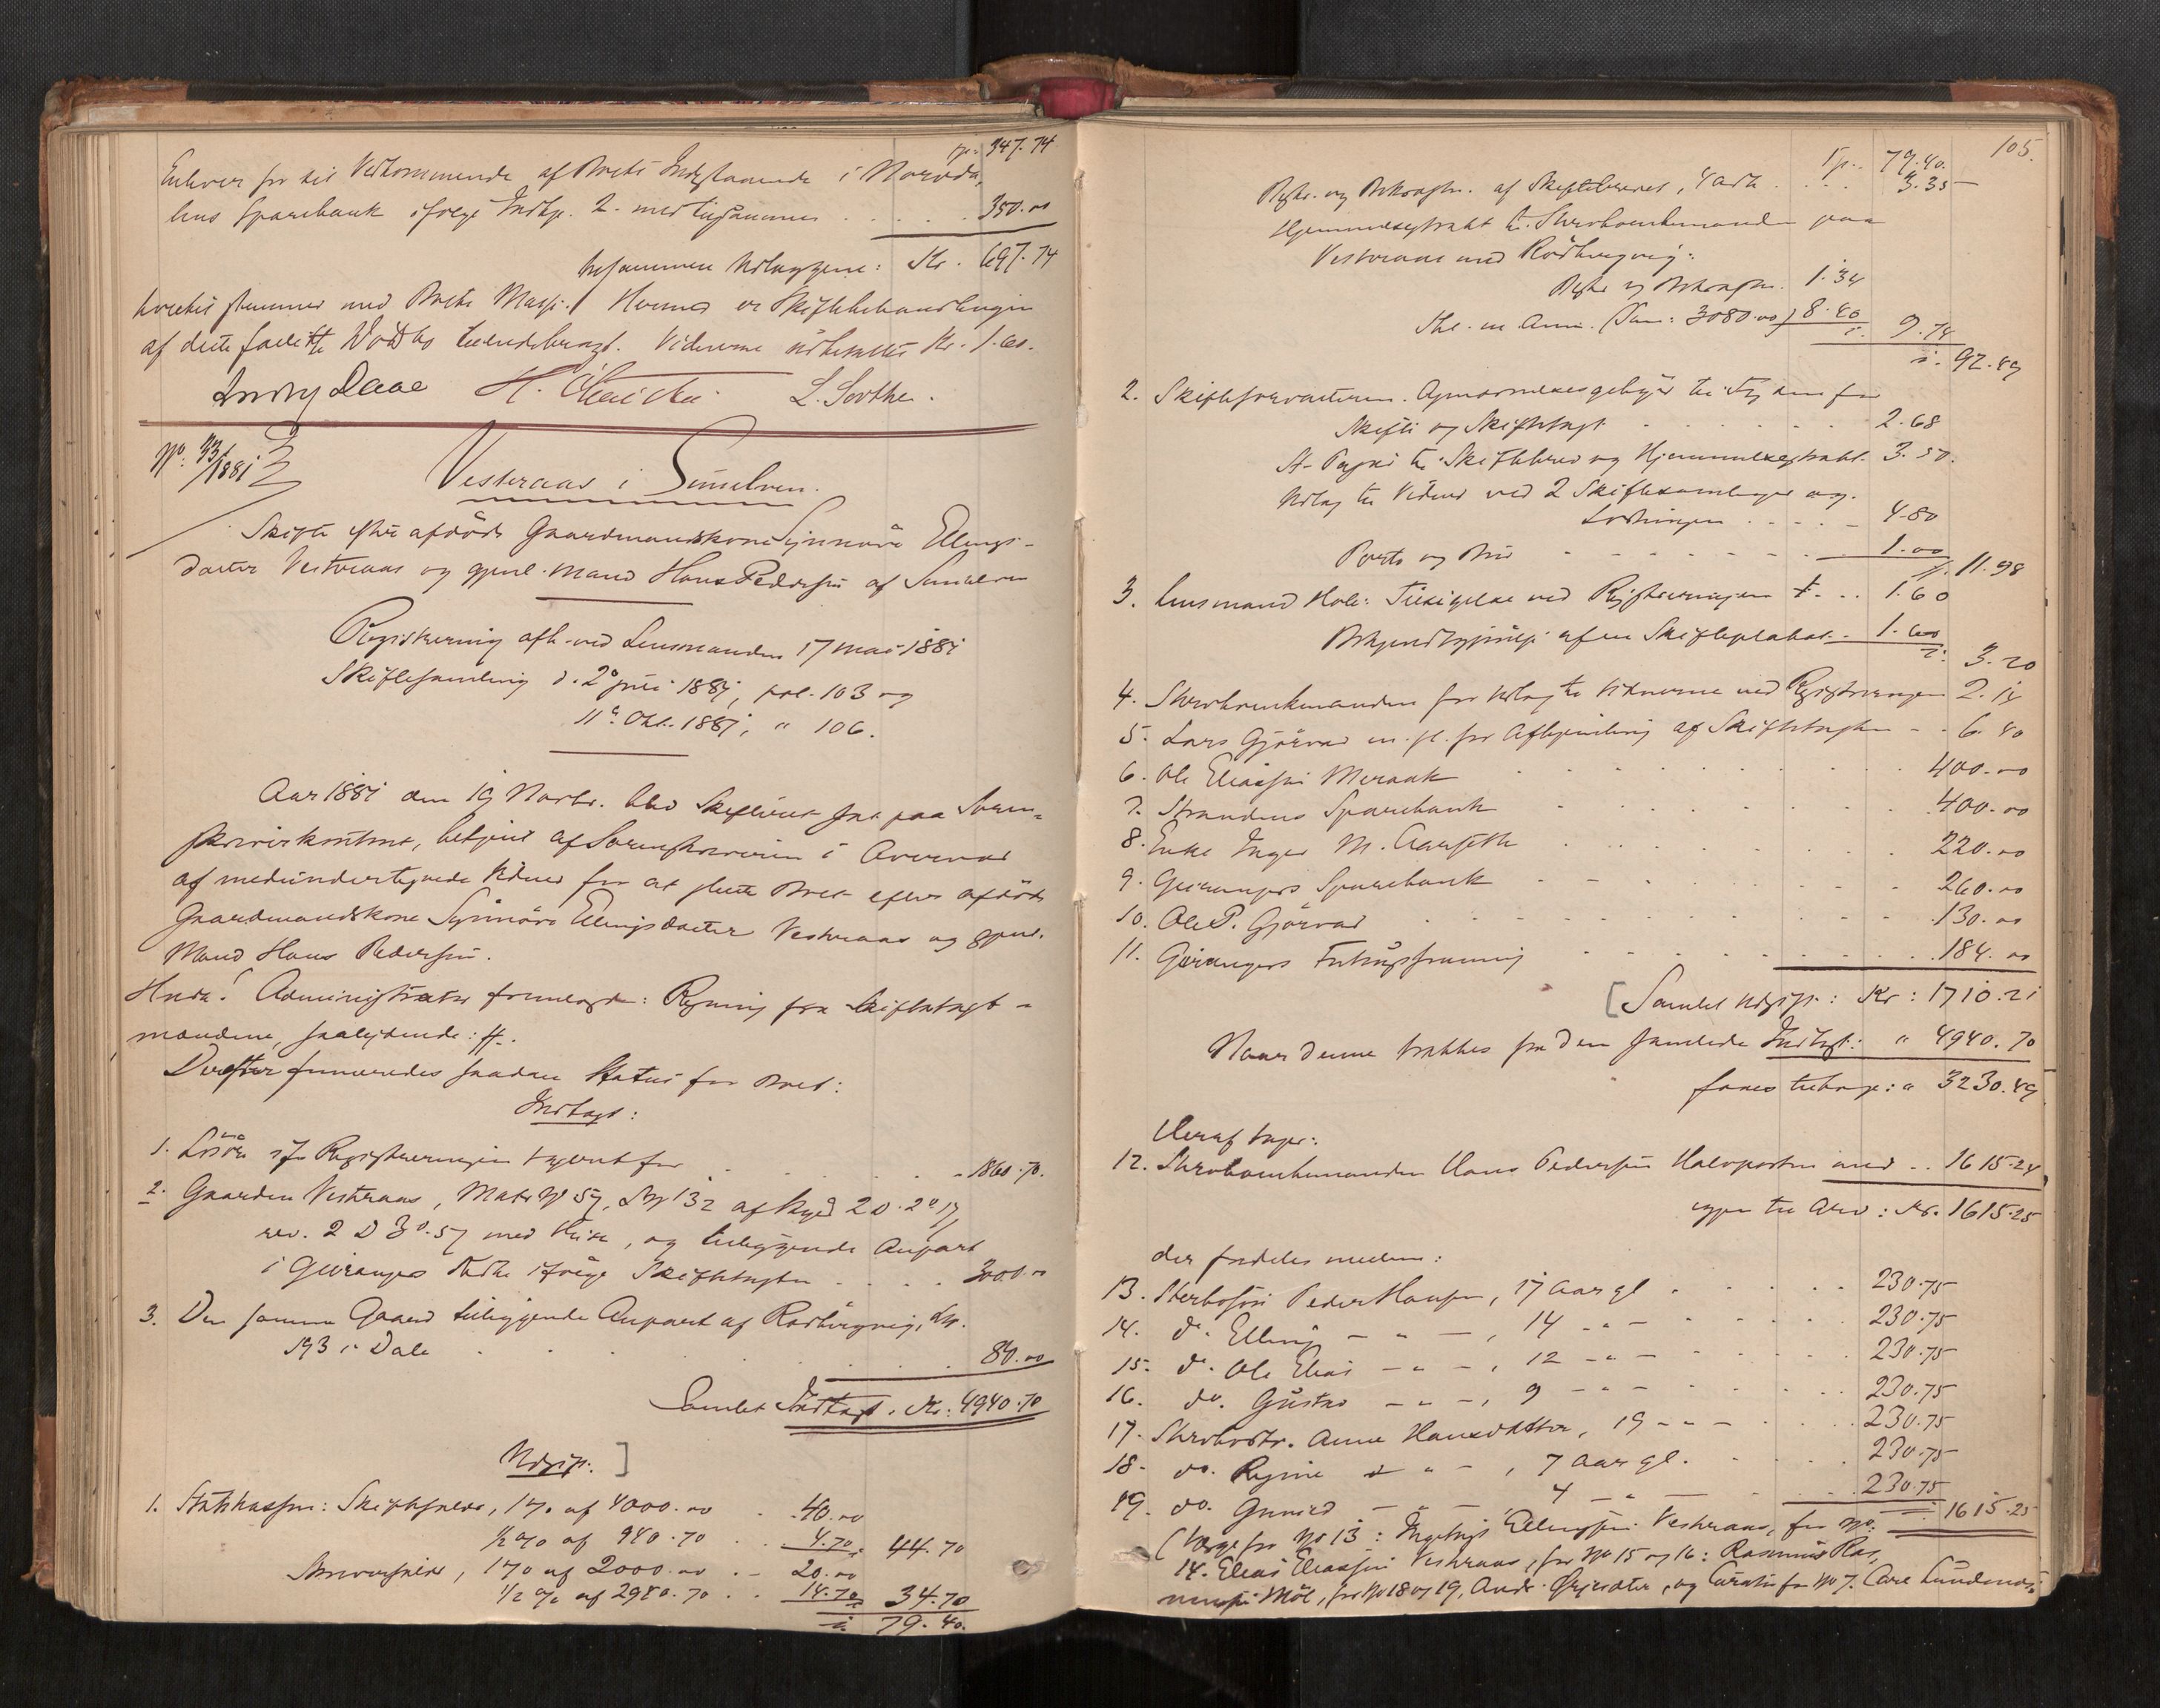 Tp. 347.74
Enhver for sit Vedkommende af Boets Indestaaende i Norddalens Sparebank ifølge Indtgt. 2. med tilsammen . . . . . 350.00
tilsammen Udlæggene: Kr. 697.74
hvorhos stemmer med Boets Masse. Hermed er Skiftebehandlingen
af dette Bo tilendebragt. Viderne udbetaltes Kr. 1.60.
Daae L. Sæther.
No. 43/1881
Vesteraas i Sunelven.
Skifte efter afdøde Gaardmandskone Synnøve Ellings-
datter Vesteraas og gjenl. Mand Hans Pedersen af Sunelven
Registrering afh. ved Lensmanden 17 Mai 1881
Skiftesamling d. 2den Juni 1881, fol. 103 og
11te Okt. 1881, " 106.
Aar 1881 den 19 Novbr. blev Skifteret sat paa Soren-
skriverkontoret, betjent af Sorenskriveren i Overvær
af medundertegnede Vidner for at slutte Boet efter afdøde
Gaardmandskone Synnøve Ellingsdatter Vesteraas og gjenl.
Mand Hans Pedersen.
Hvda! Administrator fremlagde: Regning fra Skiftetagst-
mændene, saalydende: #.
Derefter summeredes saadan Status for Boet:
Indtægt:
1. Løsøre iflg Registreringen taxeret for . . . . 1860.70.
2. Gaarden Vesteraas, Matr No 57, Lø No 132 af Skyld 2 D. 2 o 17,
rev. 2 D 3 o. 57 med Huse, og tilliggende Anpart
i Geirangers ifølge Skiftetagsten . . . . 3000.00
3. Den samme Gaard tilliggende Anpart af Rødbergvig, Lø.
193 i Dale . . . . . 80.00
Samlet Indtægt. Kr: 4940.70
Udgift:
1. Statskassen: Skifteafgift, 1 % af 4000.00 . . 40.00
1/2 % af 940.70 . . 4.70 44.70
Arveafgift, 1 % af 2000.00 . . 20.00
1/2 % af 2940.70 . . 14.70 34.70
79.40.
105.
Tp. 79.40.
og Bekræftn. af Skiftebrevet, 4 Ark . . . 3.35
Hjemmelsextrakt til Sterbøenkemanden paa
Vesteraas med Rødbergvig:
og Bekræftn. 1.34
Stl. m. Ann. (Sum: 3080.00) 8.40 9.74
92.49
2. Skifteforvalteren. til for
Skifte og Skiftetagst . . . . . 2.68
St. Papir til Skiftebrev og Hjemmelsextrakt. 3.50.
Udlæg til Vidner ved 2 Skiftesamlinger og
Slutningen . . . . 4.80
Porto og Bud . . . . . 1.00 11.98
3. Lensmand Hole: Tilsigelse ved Registreringen . . 1.60
Bekjendtgjørelse af en Skifteplakat . . 1.60 3.20
4. Sterbøenkemanden for Udlæg til Vidnerne ved Registreringen 2.14
5. Lars Gjørvad m. fl. for Afhjemling af Skiftetagsten . . 6.40
6. Ole Eliassen Meraak . . . . . 400.00
7. Strandens Sparebank . . . . . 400.00
8. Enke Inger M. Aarseth . . . . . 220.00
9. Geirangers Sparebank . . . . . 260.00
10. Ole P. Gjørvad . . . . . 130.00
11. Geirangers . . . . . 184.00
Samlet Udgift: Kr: 1710.21
Naar denne trækkes fra den samlede Indtægt: " 4940.70
faaes tilbage: " 3230.49
Heraf tager:
12. Sterbøenkemanden Hans Pedersen Halvparten med . . 1615.24
igjen til Arv: Kr. 1615.25
der fordeles mellem:
13. Sterbøsøn Peder Hansen, 17 Aar gl . . . . 230.75
14. do. Elling — " — , 14 — " — . . . . 230.75
15. do. Ole Elias — " — , 12 — " — . . . . 230.75
16. do. Gustav — " — , 9 — " — . . . . 230.75
17. Sterbødtr. Anne Hansdatter, 19 — " — . . . . 230.75
18. do. Regine — " — , 7 Aar gl. . . . . 230.75
19. do. Gunild — " — 4 — " — . . . 230.75 1615.25
(Værge for No 13: Ellingsen Vesteraas, for No.
14. Elias Eliassen Vesteraas, for No 15 og 16: Rasmus Ras-
mussen Möl, for No 18 og 19, Andr. , og Curator for No 7.